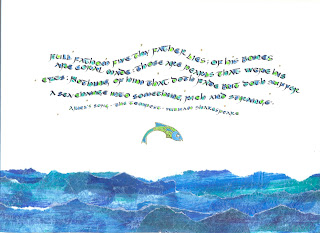 FULL FATHOM FIVE THY FATHER LIES : OF HIS BONES
ARE CORAL MADE : THOSE ARE PEARLS THAT WERE HIS
EYES : NOTHING OF HIM THAT DOTH FADE BUT DOTH SUFFER
A SEA CHANGE INTO SOMETHING RICH AND STRANGE
ARIEL'S SONG · THE TEMPEST · WILLIAM SHAKESPEARE